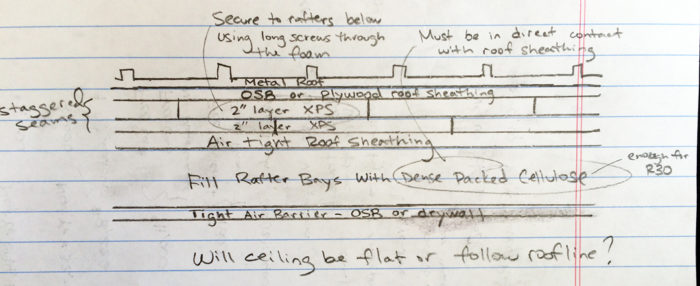 Secure to rafters below
using long screws through
the foam
Must be in direct contact
with roof sheathing
Metal Roof
OSB or Plywood roof sheathing
staggered
seams
2" layer XPS
2" layer XPS
Air Tight Roof Sheathing
Fill Rafter Bays With Dense Packed Cellulose
enough for
R30
Tight Air Barrier - OSB or drywall
Will ceiling be flat or follow roofline?